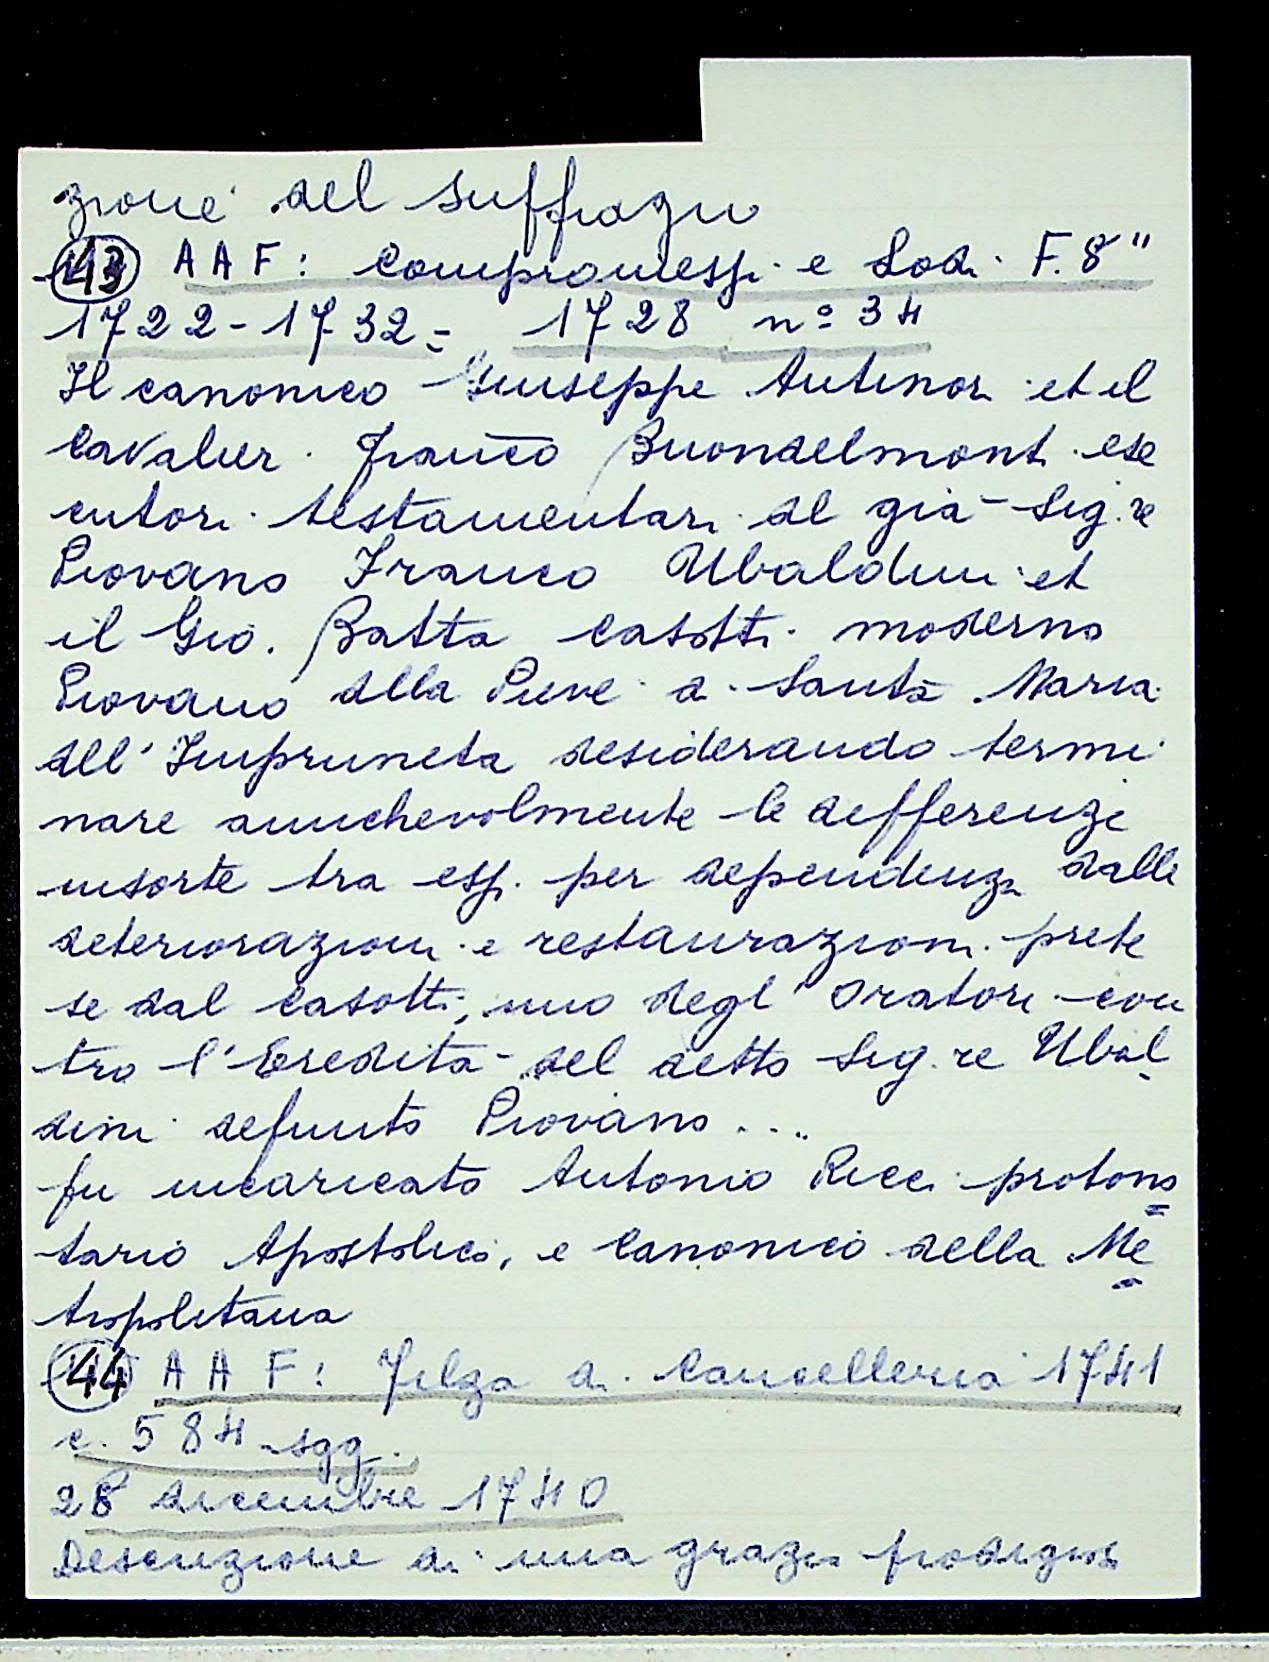 zione del suffragio
43 AAF: Compromessi e Lodi F. 8"
1722-1732= 1728 nº 34
Il canonico Giuseppe Antinori et il
Cavalier Franco Buondelmonti ese
cutori testamentari del già Sig.re
Piovano Franco Ubaldini et
il Gio. Batta Casotti moderno
Piovano della Pieve di Santa Maria
dell'Impruneta desiderando termi
nare amichevolmente le differenze
insorte tra essi per dependenza dalle
deteriorazioni e restaurazioni prete
se dal Casotti, uno degl'Oratori con
tro l'Eredità del detto Sig.re Ubal
dini defunto Piovano ...
fu incaricato Antonio Ricci protono
tario Apostolico, e Canonico della Me
tropolitana
44 AAF: Filza di Cancelleria 1741
c. 584 sgg.
28 dicembre 1740
Descrizione di una grazia prodigiosa